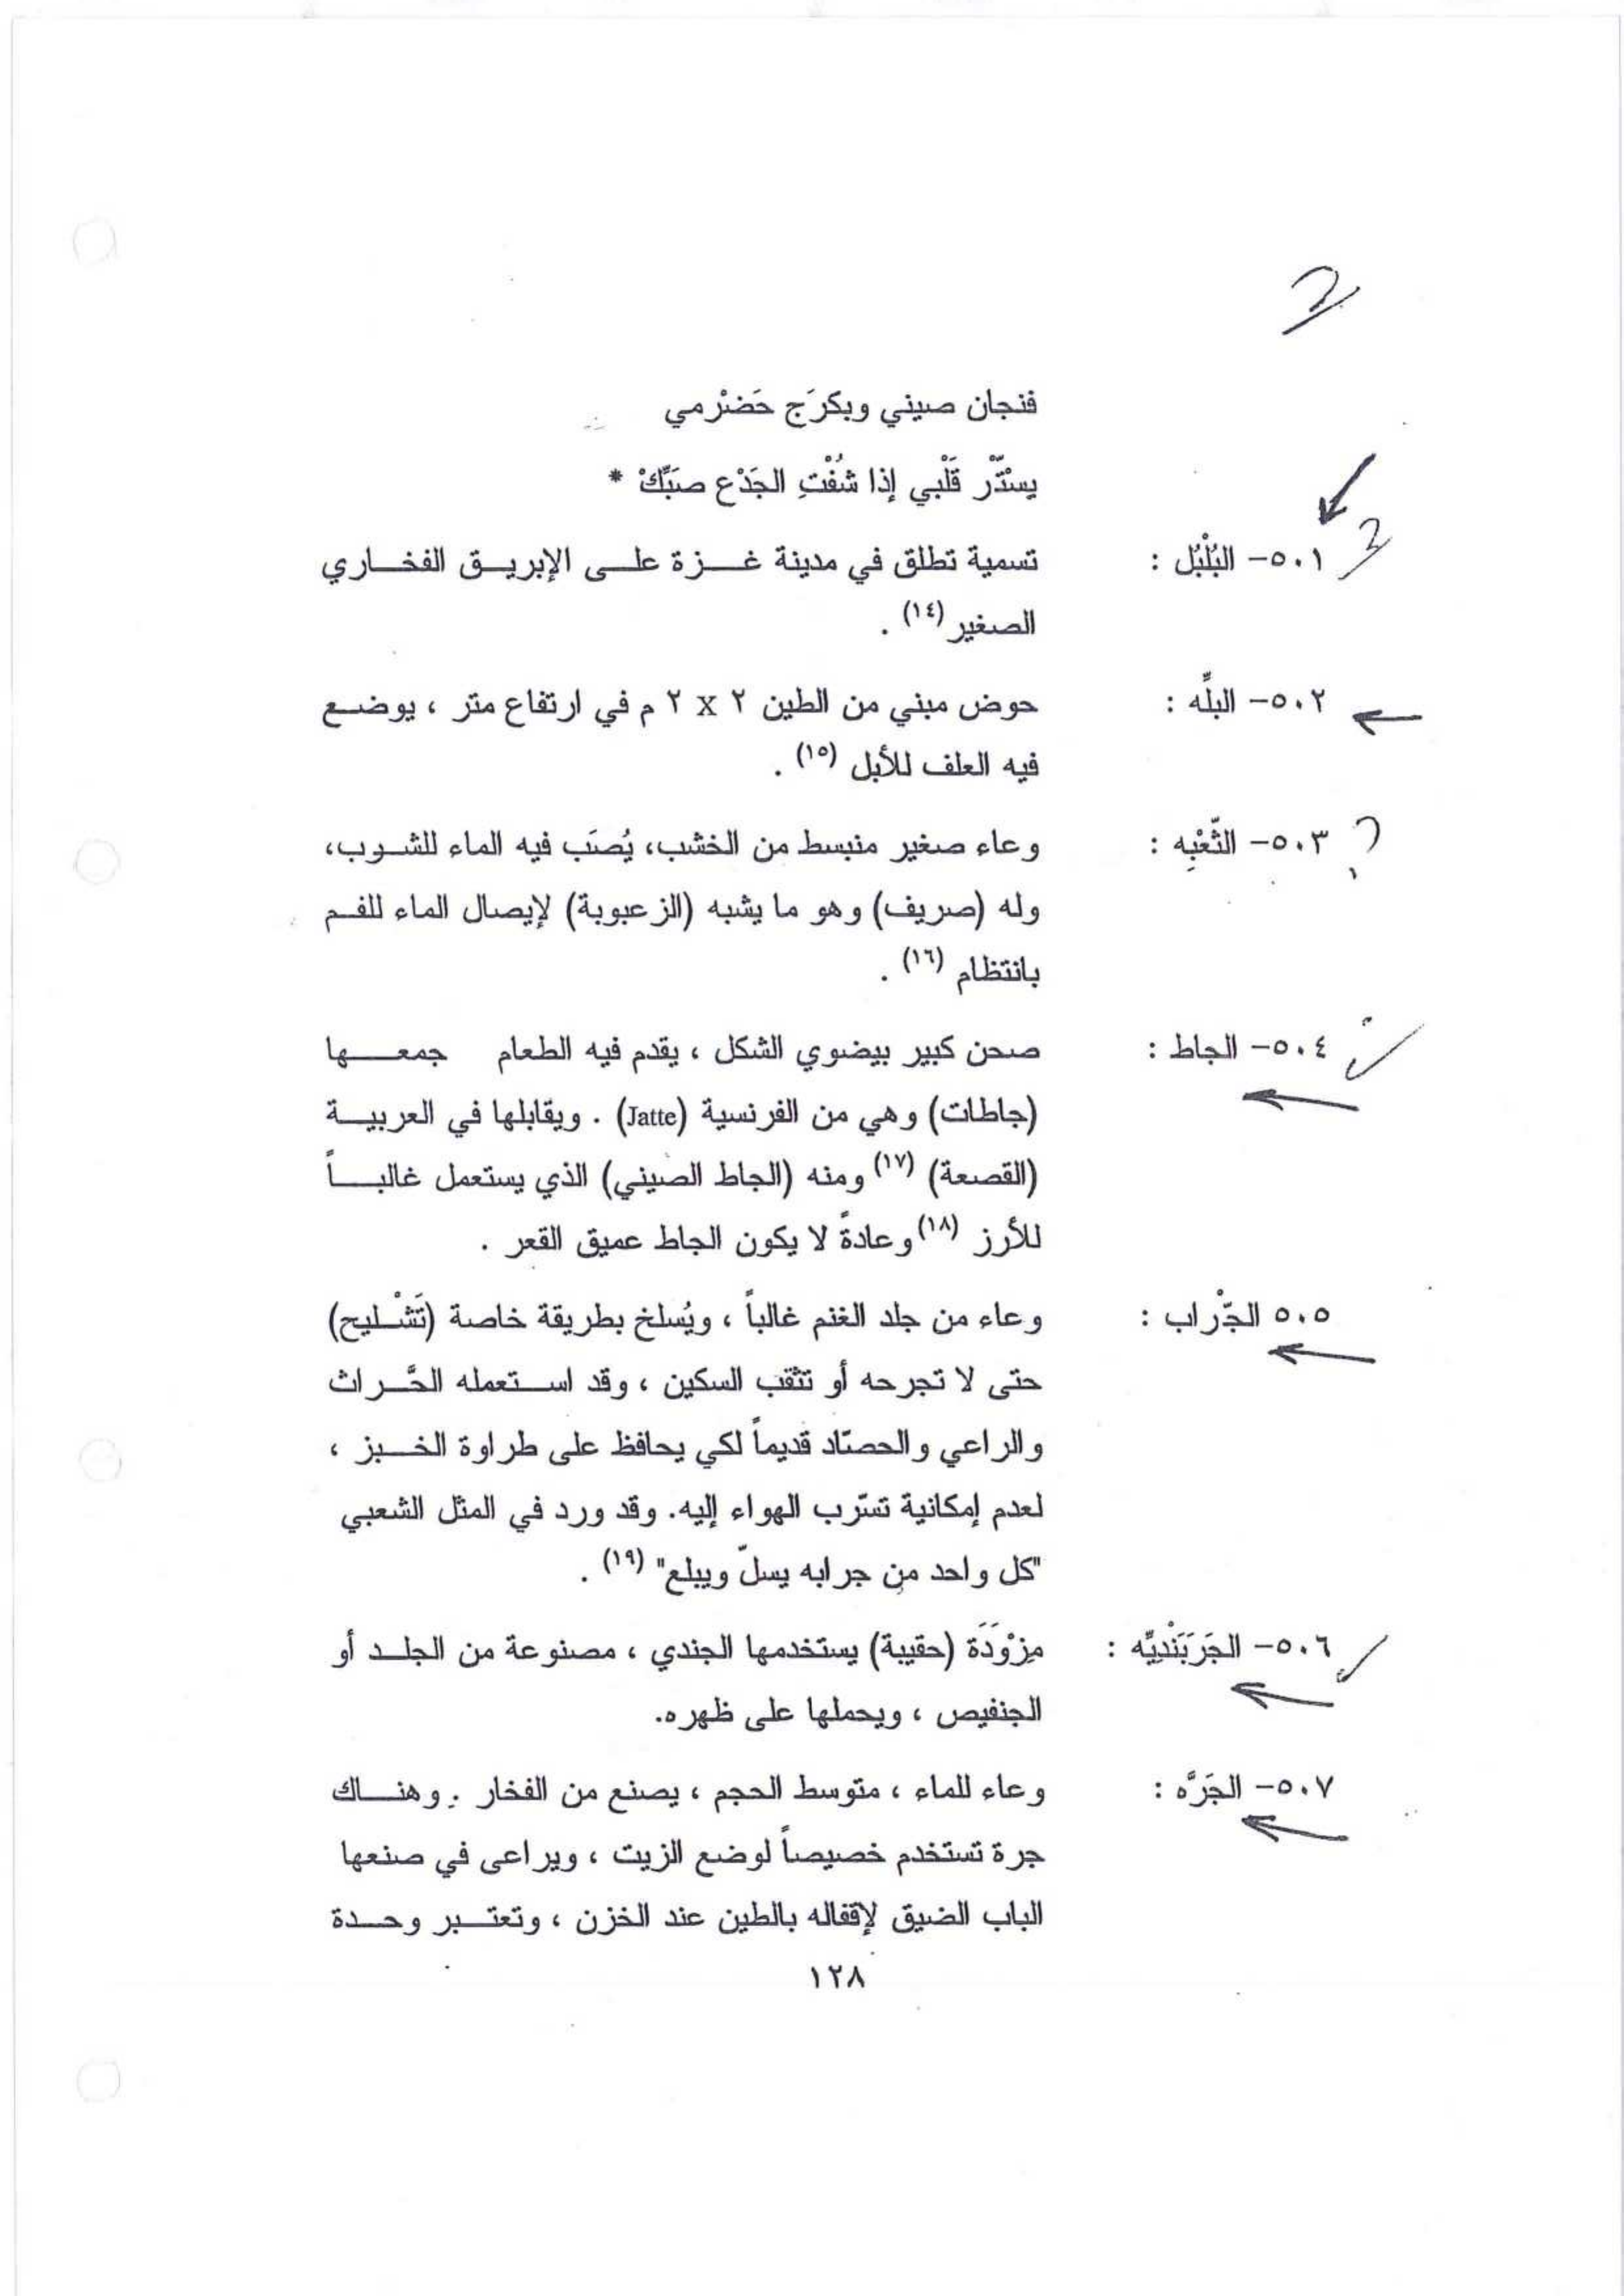 فنجان صيني وبكرَج حَضْرمي
يسْتّر قَلْبي إذا شُفْتِ الجَدْع صبَّكْ *
٥٠١- البُلْبُل : تسمية تطلق في مدينة غزة على الإبريق الفخاري
الصغير (١٤) .
٥٠٢- البلَّه : حوض مبني من الطين ٢ x ٢ م في ارتفاع متر ، يوضع
فيه العلف للأبل (١٥) .
٥٠٣- الثّعْبِه : وعاء صغير منبسط من الخشب، يُصَب فيه الماء للشوب،
وله (صريف) وهو ما يشبه (الزعبوبة) لإيصال الماء للفم
بانتظام (١٦) .
٥٠٤- الجاط : صحن كبير بيضوي الشكل ، يقدم فيه الطعام جمعها
(جاطات) وهي من الفرنسية (Jatte) . ويقابلها في العربية
(القصعة) (١٧) ومنه (الجاط الصيني) الذي يستعمل غالباً
للأرز (١٨) وعادةً لا يكون الجاط عميق القعر .
٥٠٥ الجّْراب : وعاء من جلد الغنم غالباً ، ويُسلخ بطريقة خاصة (تَشْليح)
حتى لا تجرحه أو تثقب السكين ، وقد استعمله الحَّراث
والراعي والحصّاد قديماً لكي يحافظ على طراوة الخبز ،
لعدم إمكانية تسّرب الهواء إليه. وقد ورد في المثل الشعبي
"كل واحد من جرابه يسلّ ويبلع" (١٩) .
٥٠٦- الجَرَبَنْديِّه : مِزْوَدَة (حقيبة) يستخدمها الجندي ، مصنوعة من الجلد أو
الجنفيص ، ويحملها على ظهره.
٥٠٧- الجَرَّه : وعاء للماء ، متوسط الحجم ، يصنع من الفخار . وهناك
جرة تستخدم خصيصاً لوضع الزيت ، ويراعى في صنعها
الباب الضيق لإقفاله بالطين عند الخزن ، وتعتبر وحدة
١٢٨